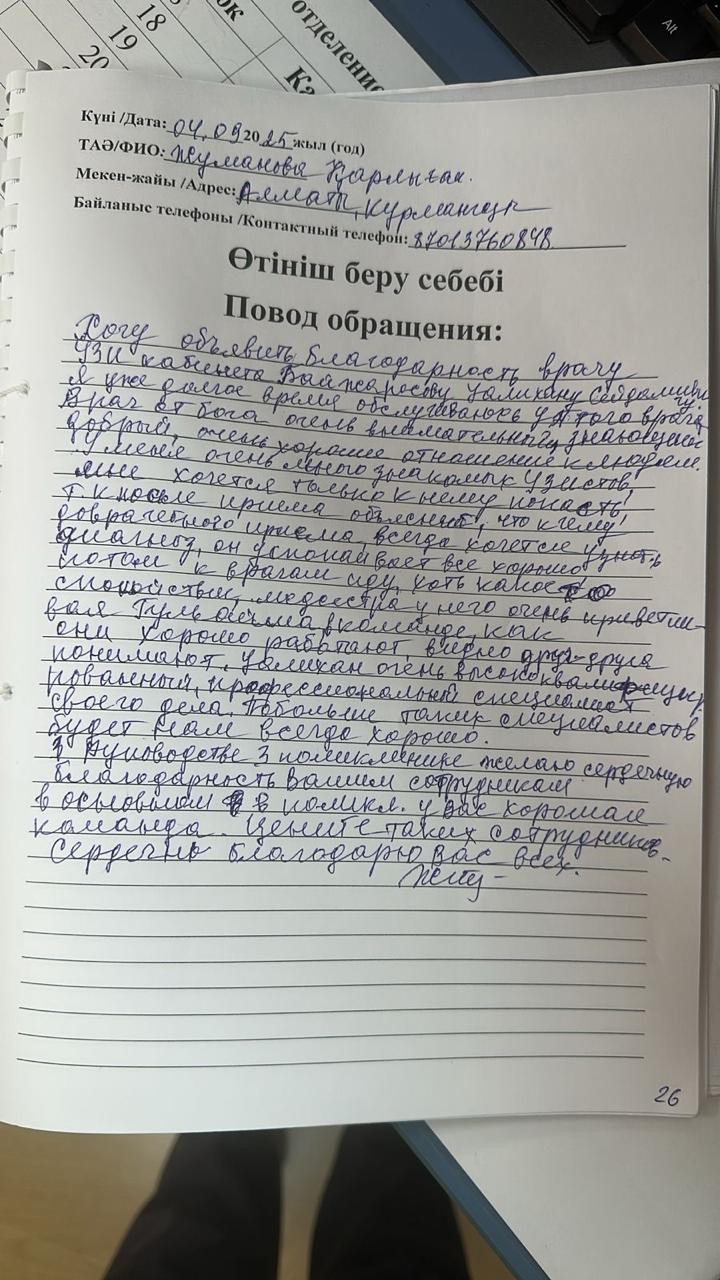 18
19
20
ок
отделение
Ка
Alt
Күні /Дата: 04.09 2025 жыл (год)
ТАӘ/ФИО: Жуманова Қарлығаш.
Мекен-жайы /Адрес: Алматы, Курмангазы
Байланыс телефоны /Контактный телефон: 87013760848
Өтініш беру себебі
Повод обращения:
Хочу объявить благодарность врачу
УЗИ кабинета Байжаросову Уалихану
Я уже долгое время обслуживаюсь у этого врача
Врач от бога очень внимательный, знающий
добрый, очень хорошие отношение к людям.
У меня очень много знакомых Узистов
мне хочется только к нему попасть!
т к после приема объяснит, что к чему!
доврачебного приема всегда хочется узнать
диагноз, он успокаивает все хорошо
потом к врагам иду, хоть какое то
спокойствии, медсестра у него очень приветли-
вая в команде, как
они хорошо работают, видно друг-друга
понимают. Уалихан очень высококвалифицир.
рованный, профессиональный специалист
своего дела. Побольше таких специалистов
будет нам всегда хорошо.
Руководстве 3 поликлинике желаю сердечную
благодарность Вашим сотрудникам
в основном в поликл. у вас хорошая
команда. Цените таких сотрудников.
Сердечно благодарю Вас всех.
26